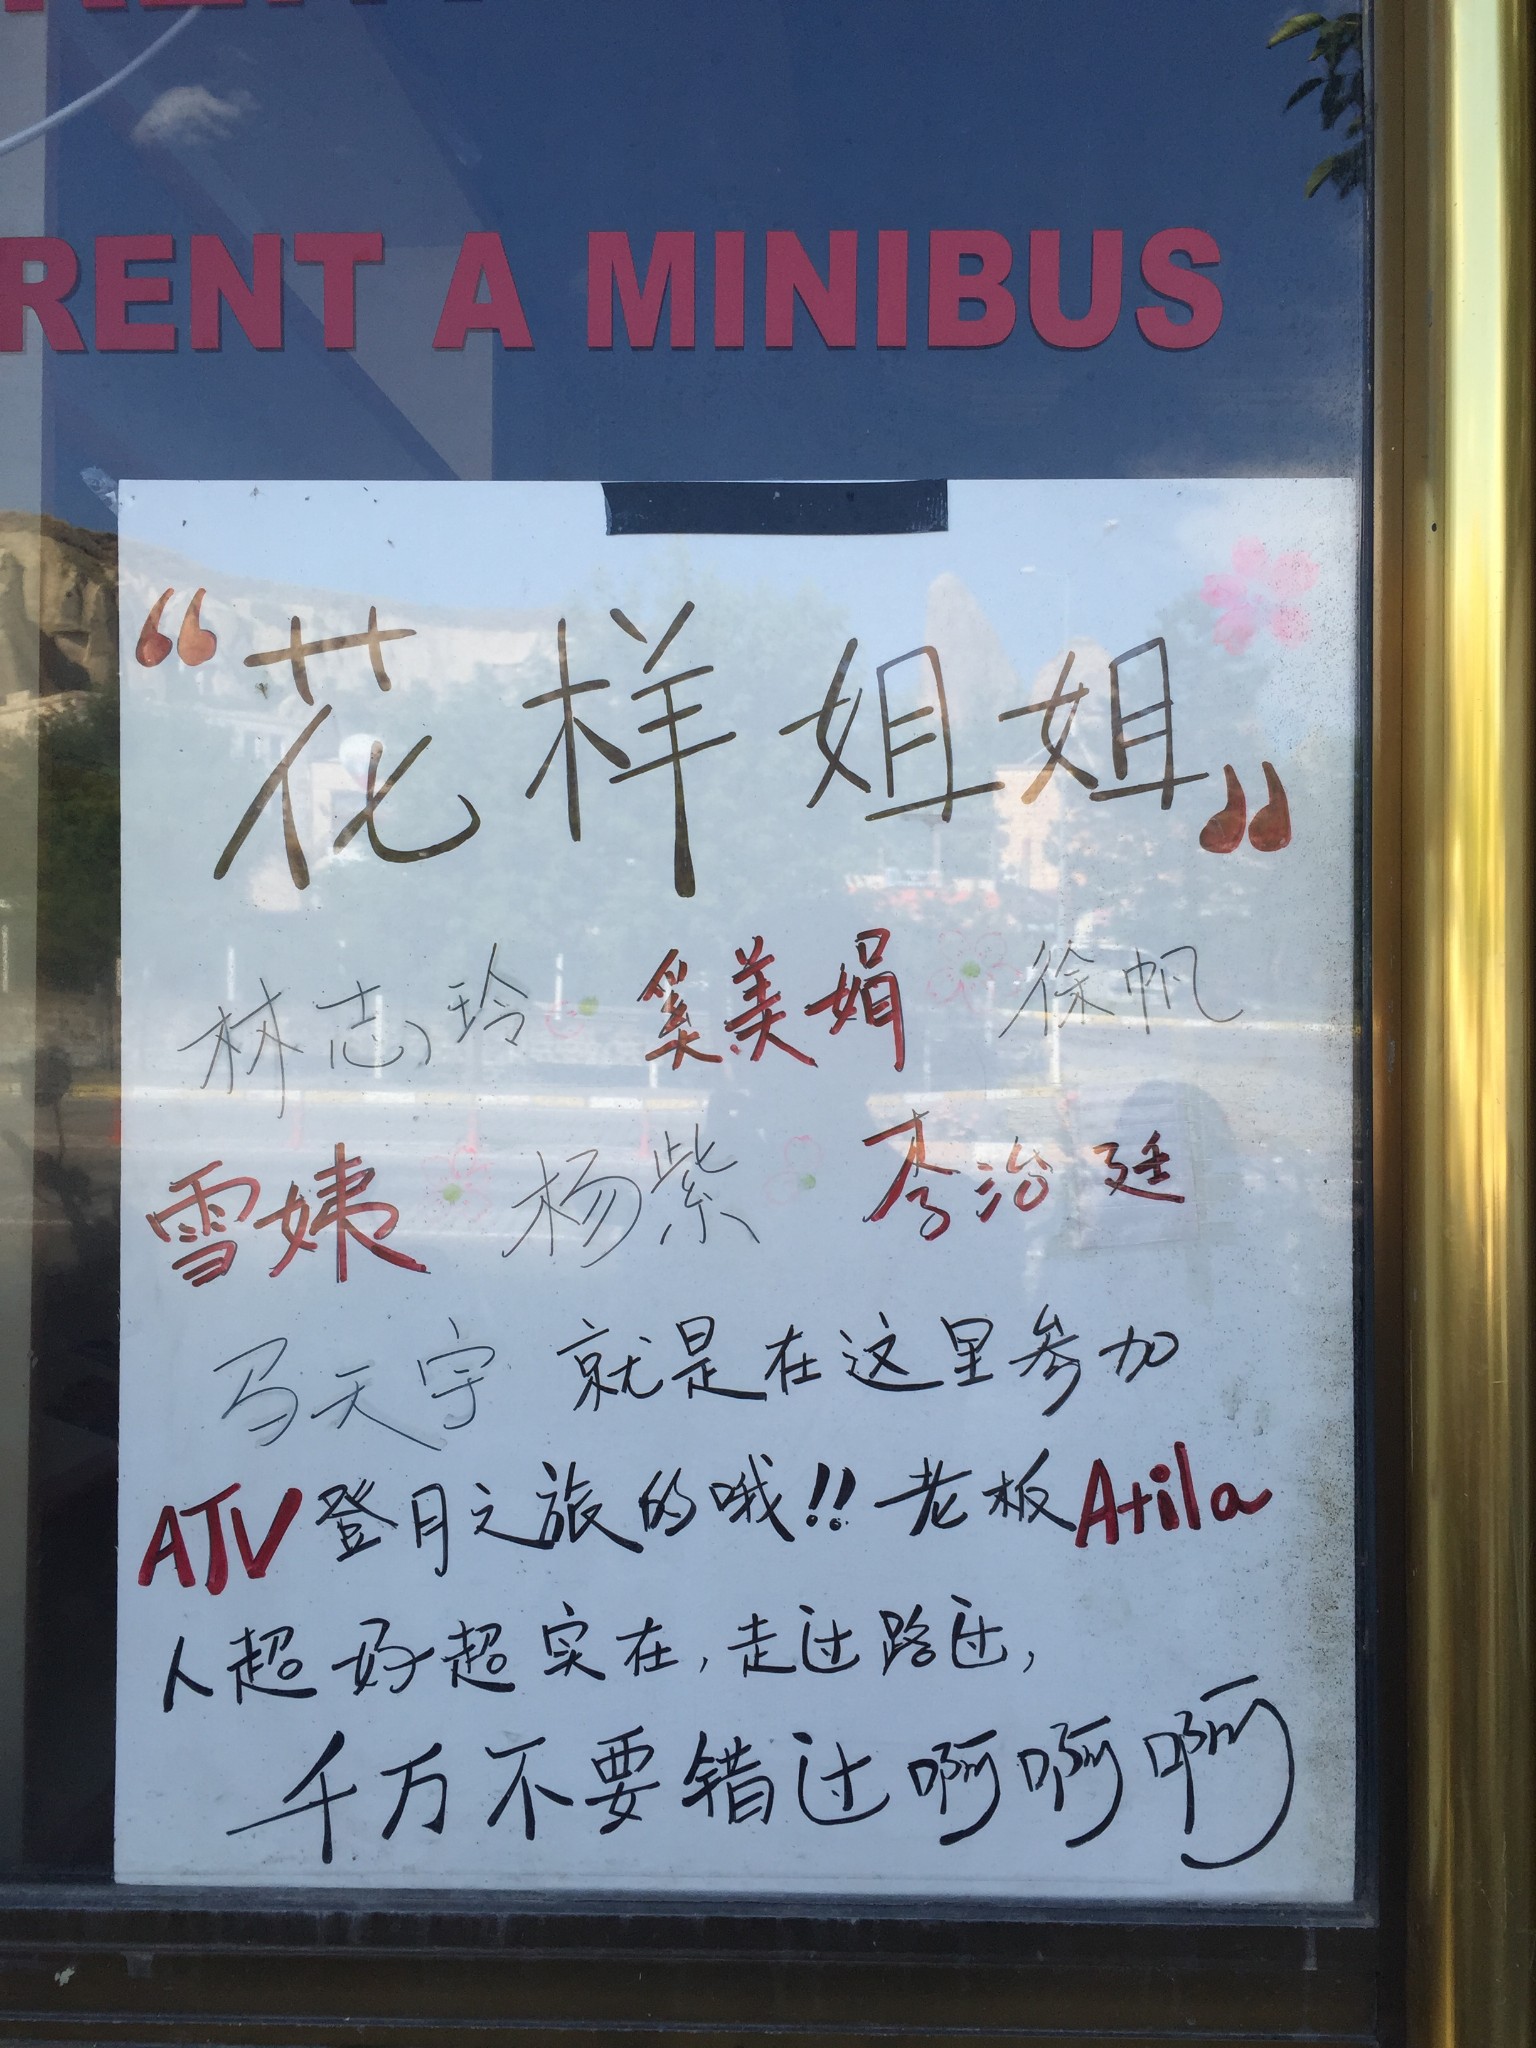 RENT A MINIBUS
“花样姐姐”
林志玲 奚美娟 徐帆
雪姨 杨紫 李治廷
马天宇 就是在这里参加
ATV登月之旅的哦!! 老板Atila
人超好超实在,走过路过,
千万不要错过啊啊啊